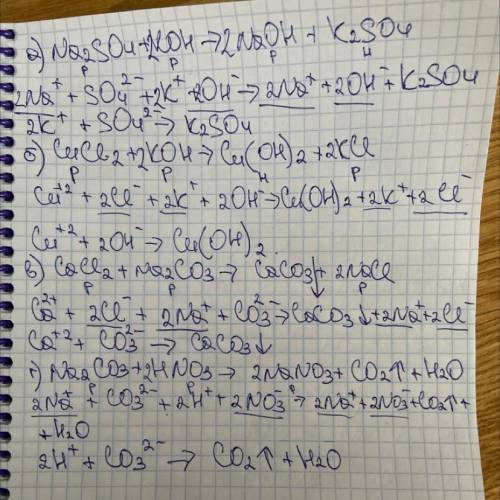 а) Na2SO4+2KOH→2NaOH + K2SO4
р р р н
2Na⁺ + SO4²⁻ +2K⁺ +2OH⁻→2Na⁺+2OH⁻+K2SO4
2K⁺ + SO4²⁻→ K2SO4
б) CuCl2+2KOH→Cu(OH)2+2KCl
р р н р
Cu⁺² + 2Cl⁻ +2K⁺ + 2OH⁻→Cu(OH)2+2K⁺+2Cl⁻
Cu⁺² + 2OH⁻→ Cu(OH)2.
в) CaCl2 + Na2CO3→ CaCO3↓+ 2NaCl
р р р
Ca²⁺ + 2Cl⁻ + 2Na⁺ + CO3²⁻→CaCO3↓+2Na⁺+2Cl⁻
Ca⁺² + CO3²⁻ → CaCO3↓
г) Na2CO3+2HNO3→ 2NaNO3+CO2↑+H2O
р р р
2Na⁺ + CO3²⁻ + 2H⁺ + 2NO3⁻→ 2Na⁺+2NO3⁻+CO2↑+
+H2O
2H⁺ + CO3²⁻ → CO2↑ + H2O